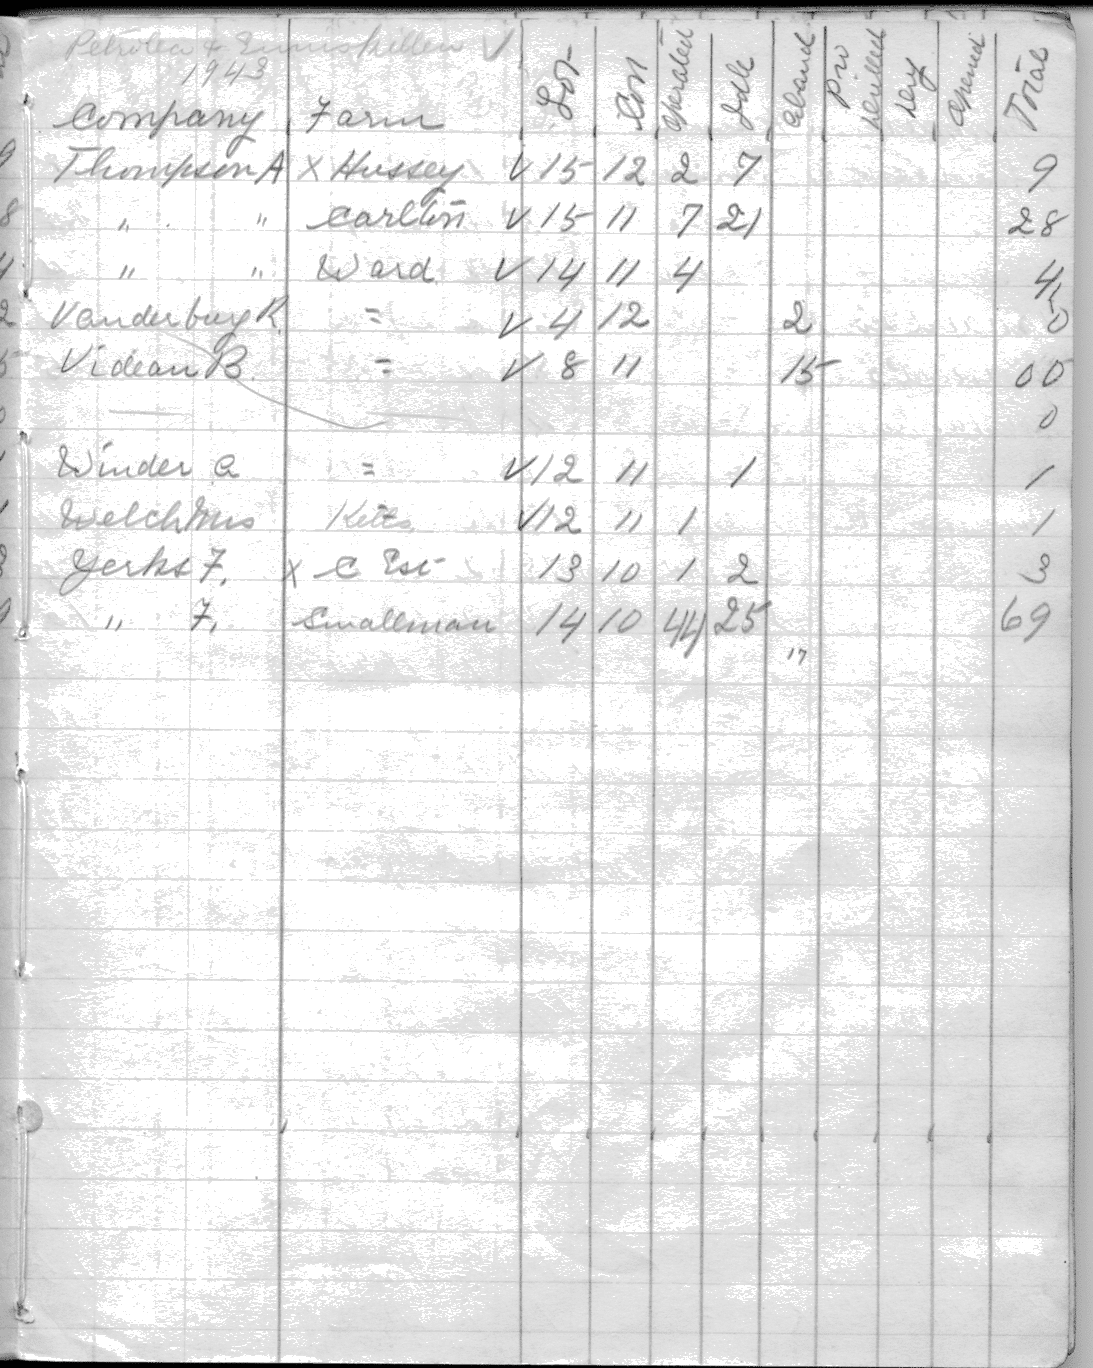 Petrolea & Enniskillen ✓
1943
Company Farm Lot Con operated Idle aband pro drilled dry opened Total
Thompson A X Hussey ✓ 15 12 2 7 9
" " Carlton ✓ 15 11 7 21 28
" " Ward ✓ 14 11 4 4
Vanderburg R. = ✓ 4 12 2 0
Videan B. = ✓ 8 11 15 00
0
Winder A = ✓ 12 11 1 1
Welch Mrs Ketts ✓ 12 11 1 1
Yerks F. X C Est 13 10 1 2 3
" F. Smallman 14 10 44 25 69
17